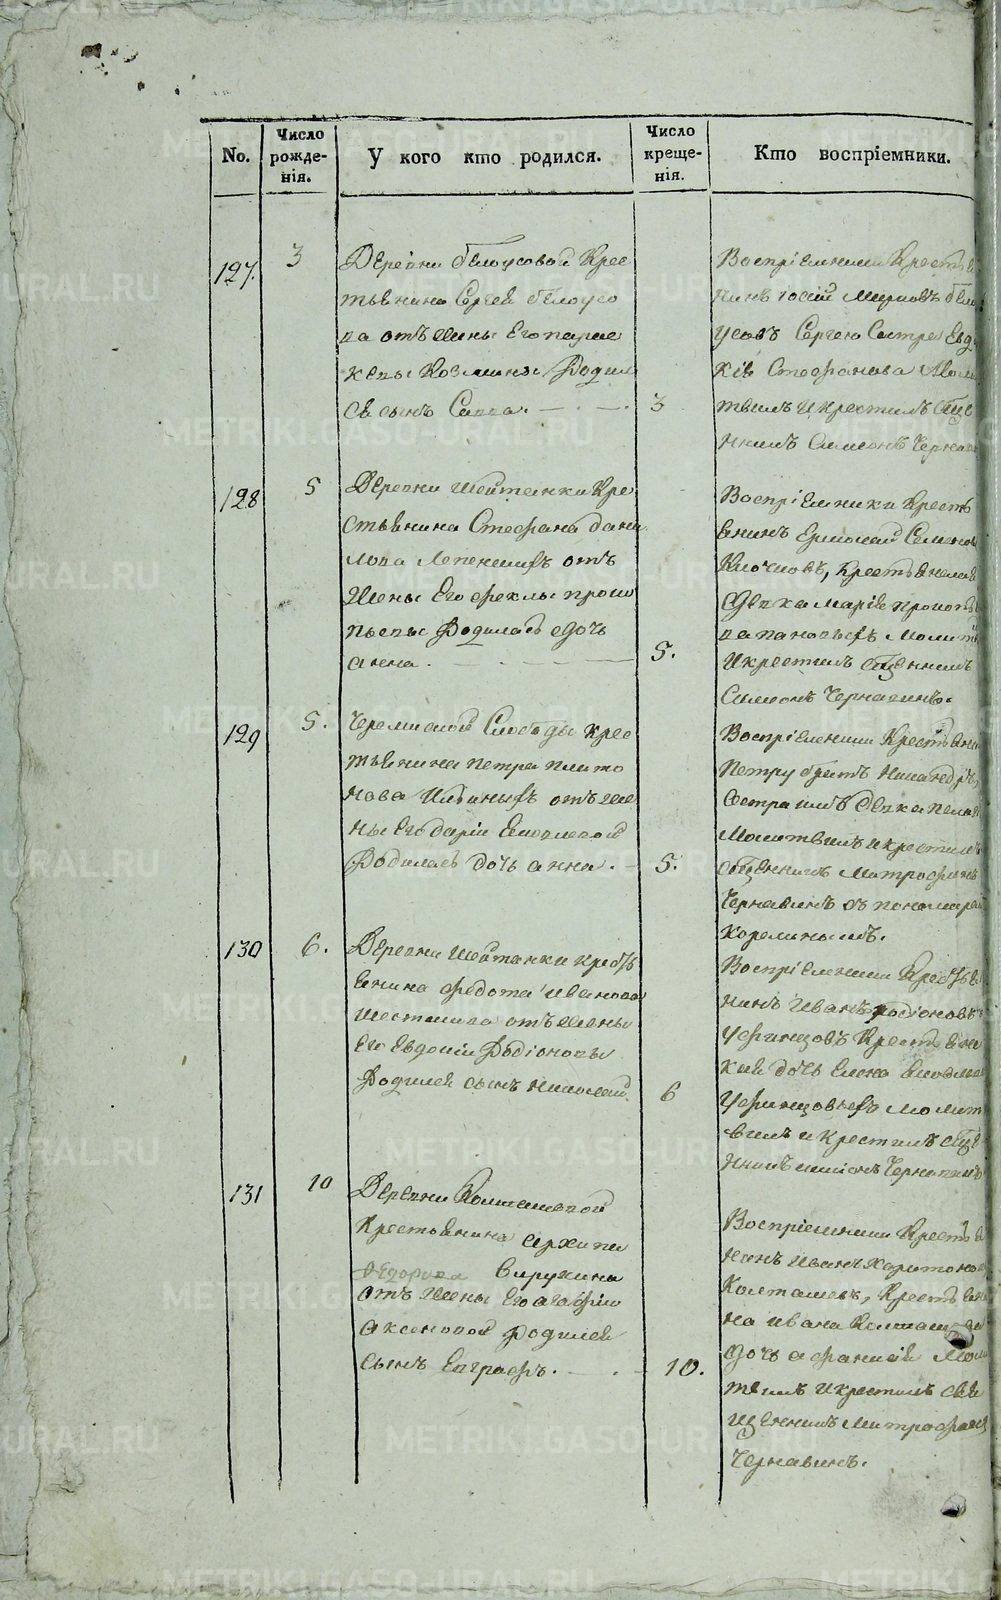 No.
Число рожде-нія.
У кого кто родился.
Число креще-нія.
Кто воспріемники.
127.
3
Деревни белоусовой Крес
тьянина Сергея белоусо
ва отъ жены Его параске
Козмины Родил
ся сынъ Савва.
3
Воспріемники Крестья
нинъ Мироновъ бело
усовъ Сергею Сестра Евдо
кія Стефанова Моли
твилъ и крестилъ Свще
нникъ Симеонъ Чернави
128
5
Деревни Шайтанки Кре
стьянина Стефана Дани
лова отъ
Жены Его феклы проко
пьевы Родилась дочь
анна.
5.
Воспріемники Кресть
янинъ Ермолай Семенов
Клочковъ, Крестьянская
Девка Марія
Молитв
И крестилъ Сщенникъ
Симеонъ Чернавинъ.
129
5.
Черемиской Слободы крес
тьянина петра плато
нова Ильиныхъ отъ же
ны Его даріи
Родилась дочь анна.
5.
Воспріемники Крестьяни
Петру братъ Никандръ,
Сестра имъ девка пелаг
Молитвилъ и крестилъ
Сщенникъ Митрофанъ
Чернавинъ съ пономарем
Корелинымъ.
130
6.
Деревни Шайтанки кресть
янина федота иванова
Шестакова отъ жены
Его Евдокіи Родіоновы
Родился сынъ Николай.
6
Воспріемники Крестья
нинъ Иванъ родіоновъ
Уфинцовъ Крестьянс
кая дочь Елена
Уфинцовыхъ молит
вилъ и крестилъ Свще
нникъ симіонъ Чернавинъ
131
10
Деревни Колташевой
Крестьянина архипа
Федорова
отъ жены Его агафіи
аксеновой Родился
сынъ Евграфъ.
10.
Воспріемники Крестья
нинъ Иванъ Харитонов
Колташевъ, Крестьяни
на ивана Колташева
дочь афанасія Моли
твилъ и крестилъ Свя
щенникъ Митрофанъ
Чернавинъ.
METRIKI.GASO-URAL.RU